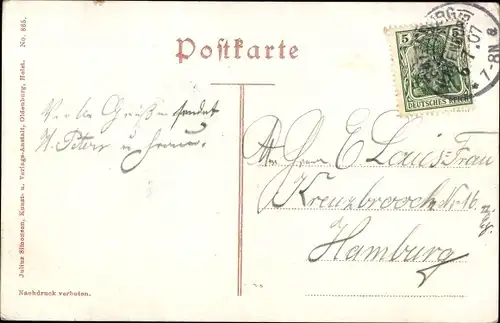 Postkarte
Julius Simonsen, Kunst- u. Verlags-Anstalt, Oldenburg, Holst. No. 885.
Nachdruck verboten.
5
DEUTSCHES REICH
07
* 7-8N a
Viele Grüße sendet
H. Peters u Frau.
E Lau's Frau
Kreuzbrook Nr 16.
Hamburg